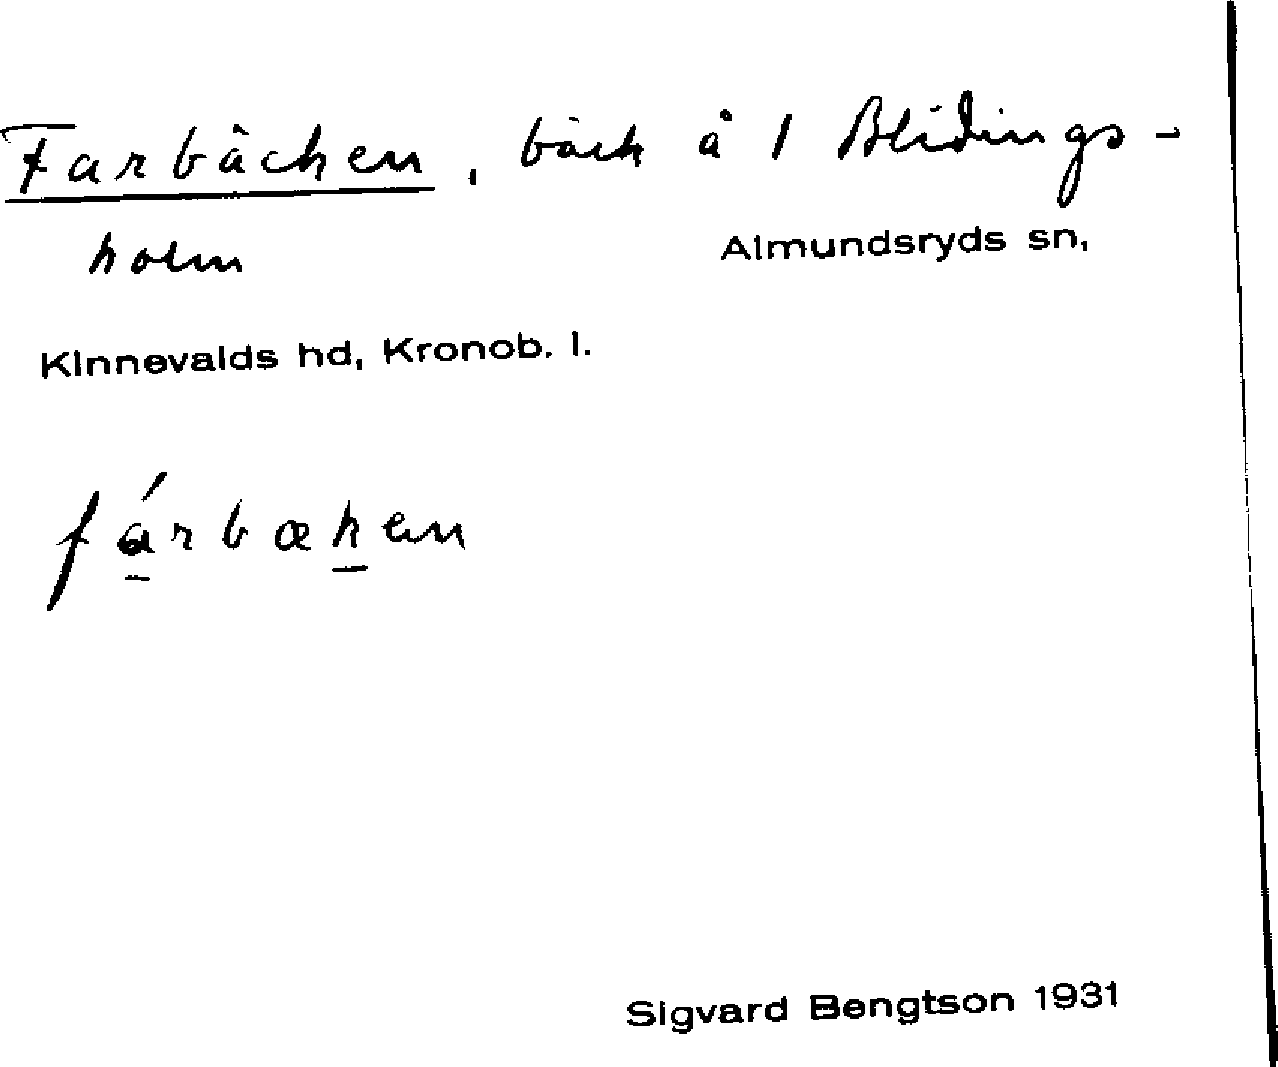 Farbäcken, bäck å 1 Blidings-
holm
Almundsryds sn,
Kinnevalds hd, Kronob. l.
fárbæken
Sigvard Bengtson 1931